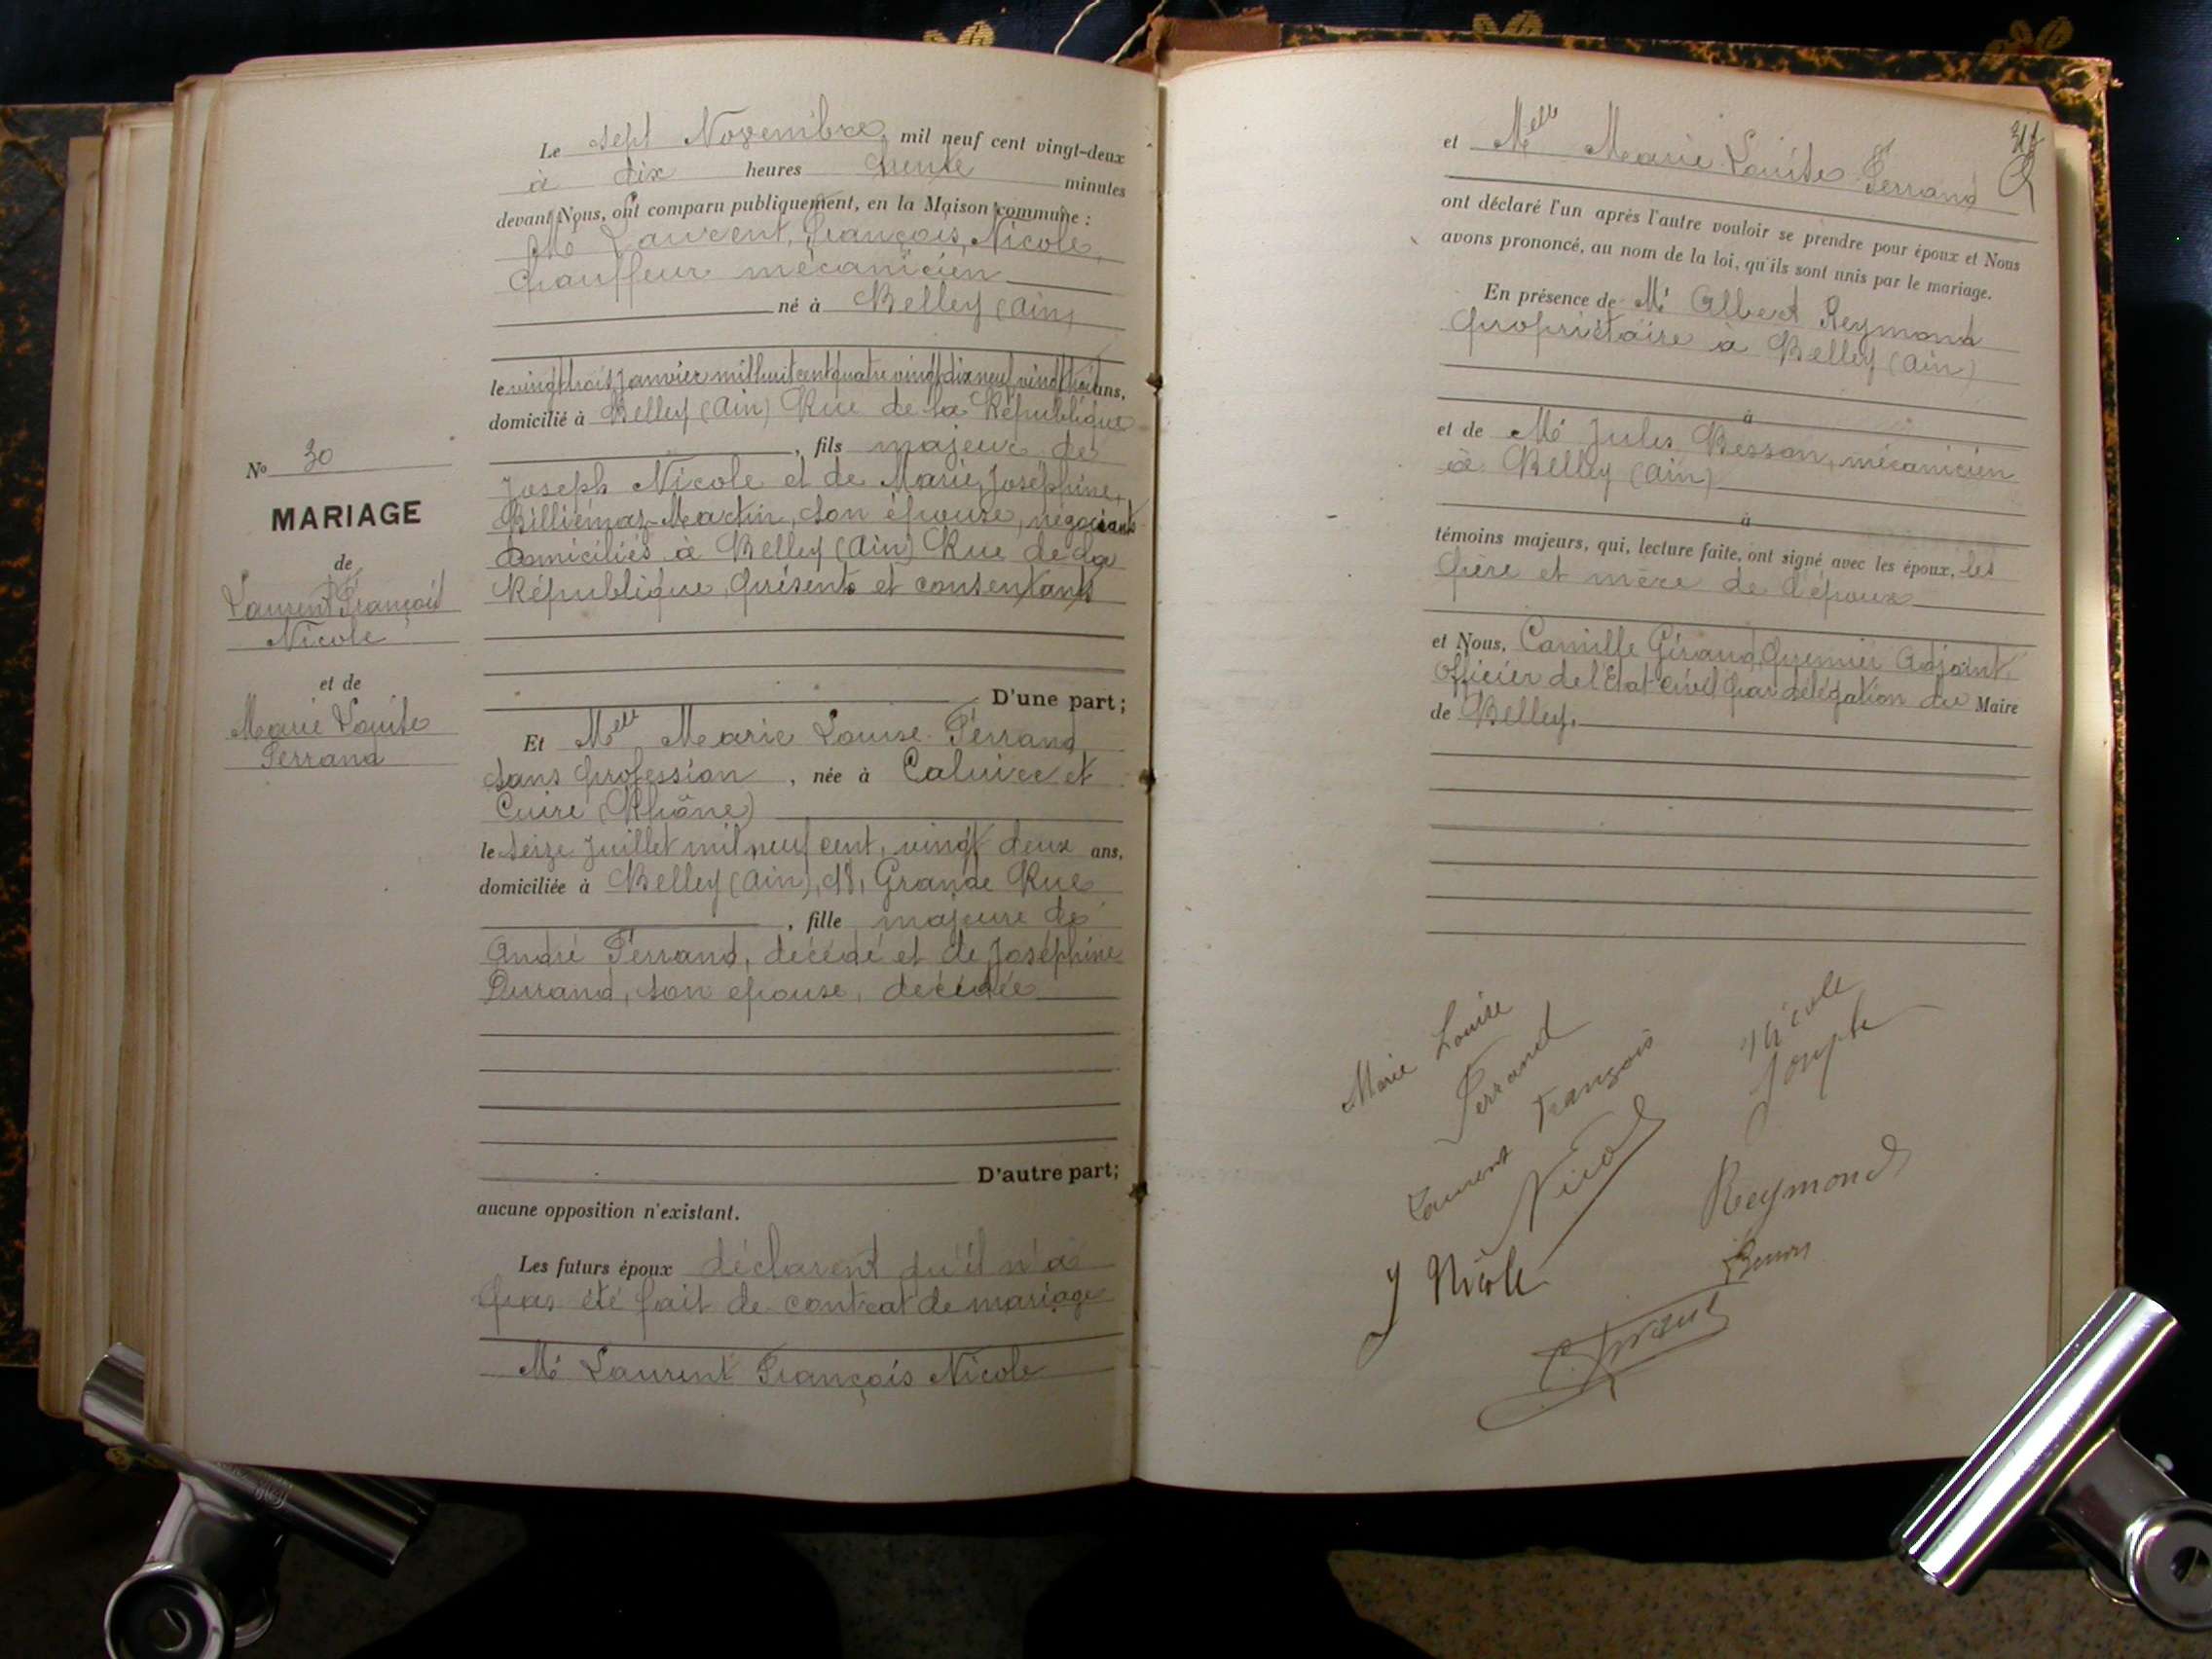 Le sept Novembre, mil neuf cent vingt-deux
à dix heures trente minutes
devant Nous, ont comparu publiquement, en la Maison commune :
Mr Laurent, François, Nicole,
Chauffeur mécanicien
né à Belley (Ain)
le vingt trois Janvier mil huit cent quatre vingt dix neuf, vingt trois ans,
domicilié à Belley (Ain) Rue de la République
, fils majeur de
Joseph Nicole et de Marie, Joséphine,
Billiémaz-Martin, son épouse, négociants
domiciliés à Belley (Ain) Rue de la
République, présents et consentants
D'une part;
Et Melle Marie Louise Ferrand,
sans profession, née à Caluire et
Cuire (Rhône)
le seize Juillet mil neuf cent, vingt deux ans,
domiciliée à Belley (Ain), 18, Grande Rue
, fille majeure de
André Ferrand, décédé et de Joséphine
Durand, son épouse, décédée
D'autre part;
aucune opposition n'existant.
Les futurs époux déclarent qu'il n'a
pas été fait de contrat de mariage
Mr Laurent François Nicole
No 30
MARIAGE
de
Laurent François
Nicole
et de
Marie Louise
Ferrand
et Melle Marie Louise Ferrand
ont déclaré l'un après l'autre vouloir se prendre pour époux et Nous
avons prononcé, au nom de la loi, qu'ils sont unis par le mariage.
En présence de Mr Albert Reymond
propriétaire à Belley (Ain)
à
et de Mr Jules Besson, mécanicien
à Belley (Ain)
à
témoins majeurs, qui, lecture faite, ont signé avec les époux, les
père et mère de l'époux
et Nous, Camille Giraud, premier Adjoint
Officier de l'Etat civil par délégation du Maire
de Belley.
Marie Louise
Ferrand
Nicole
Joseph
Laurent François
Nicole
Reymond
J Nicole
Besson
C. Giraud